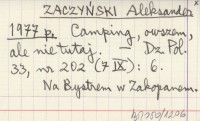 ZACZYŃSKI Aleksander
1977 r. Camping, owszem,
ale nie tutaj. – Dz Pol.
33, nr 202 (7 IX): 6.
Na Bystrem w Zakopanem.